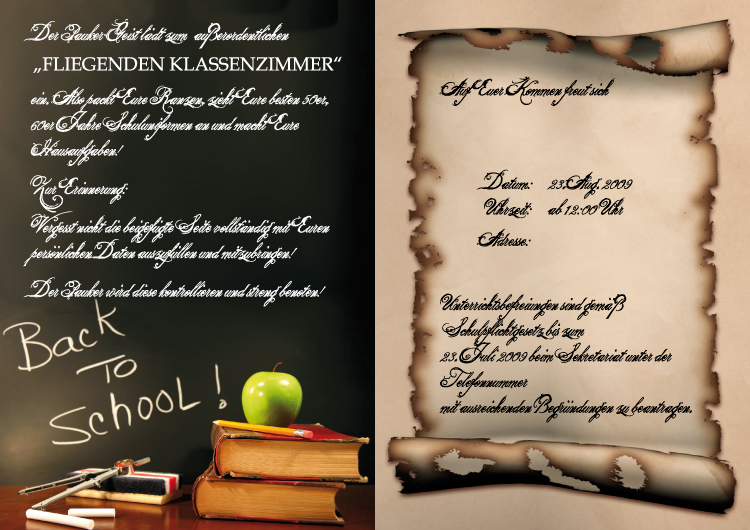 Der Pauker-Geist lädt zum außerordentlichen
„FLIEGENDEN KLASSENZIMMER“
ein. Also packt Eure Ranzen, zieht Eure besten 50er,
60er Jahre Schuluniformen an und macht Eure
Hausaufgaben!
Zur Erinnerung:
Vergesst nicht die beigefügte Seite vollständig mit Euren
persönlichen Daten auszufüllen und mitzubringen!
Der Pauker wird diese kontrollieren und streng benoten!
Back
To
School!
Auf Euer Kommen freut sich
Datum: 23.Aug. 2009
Uhrzeit: ab 12:00 Uhr
Adresse:
Unterrichtsbefreiungen sind gemäß
Schulpflichtgesetz bis zum
23. Juli 2009 beim Sekretariat unter der
Telefonnummer
mit ausreichenden Begründungen zu beantragen.